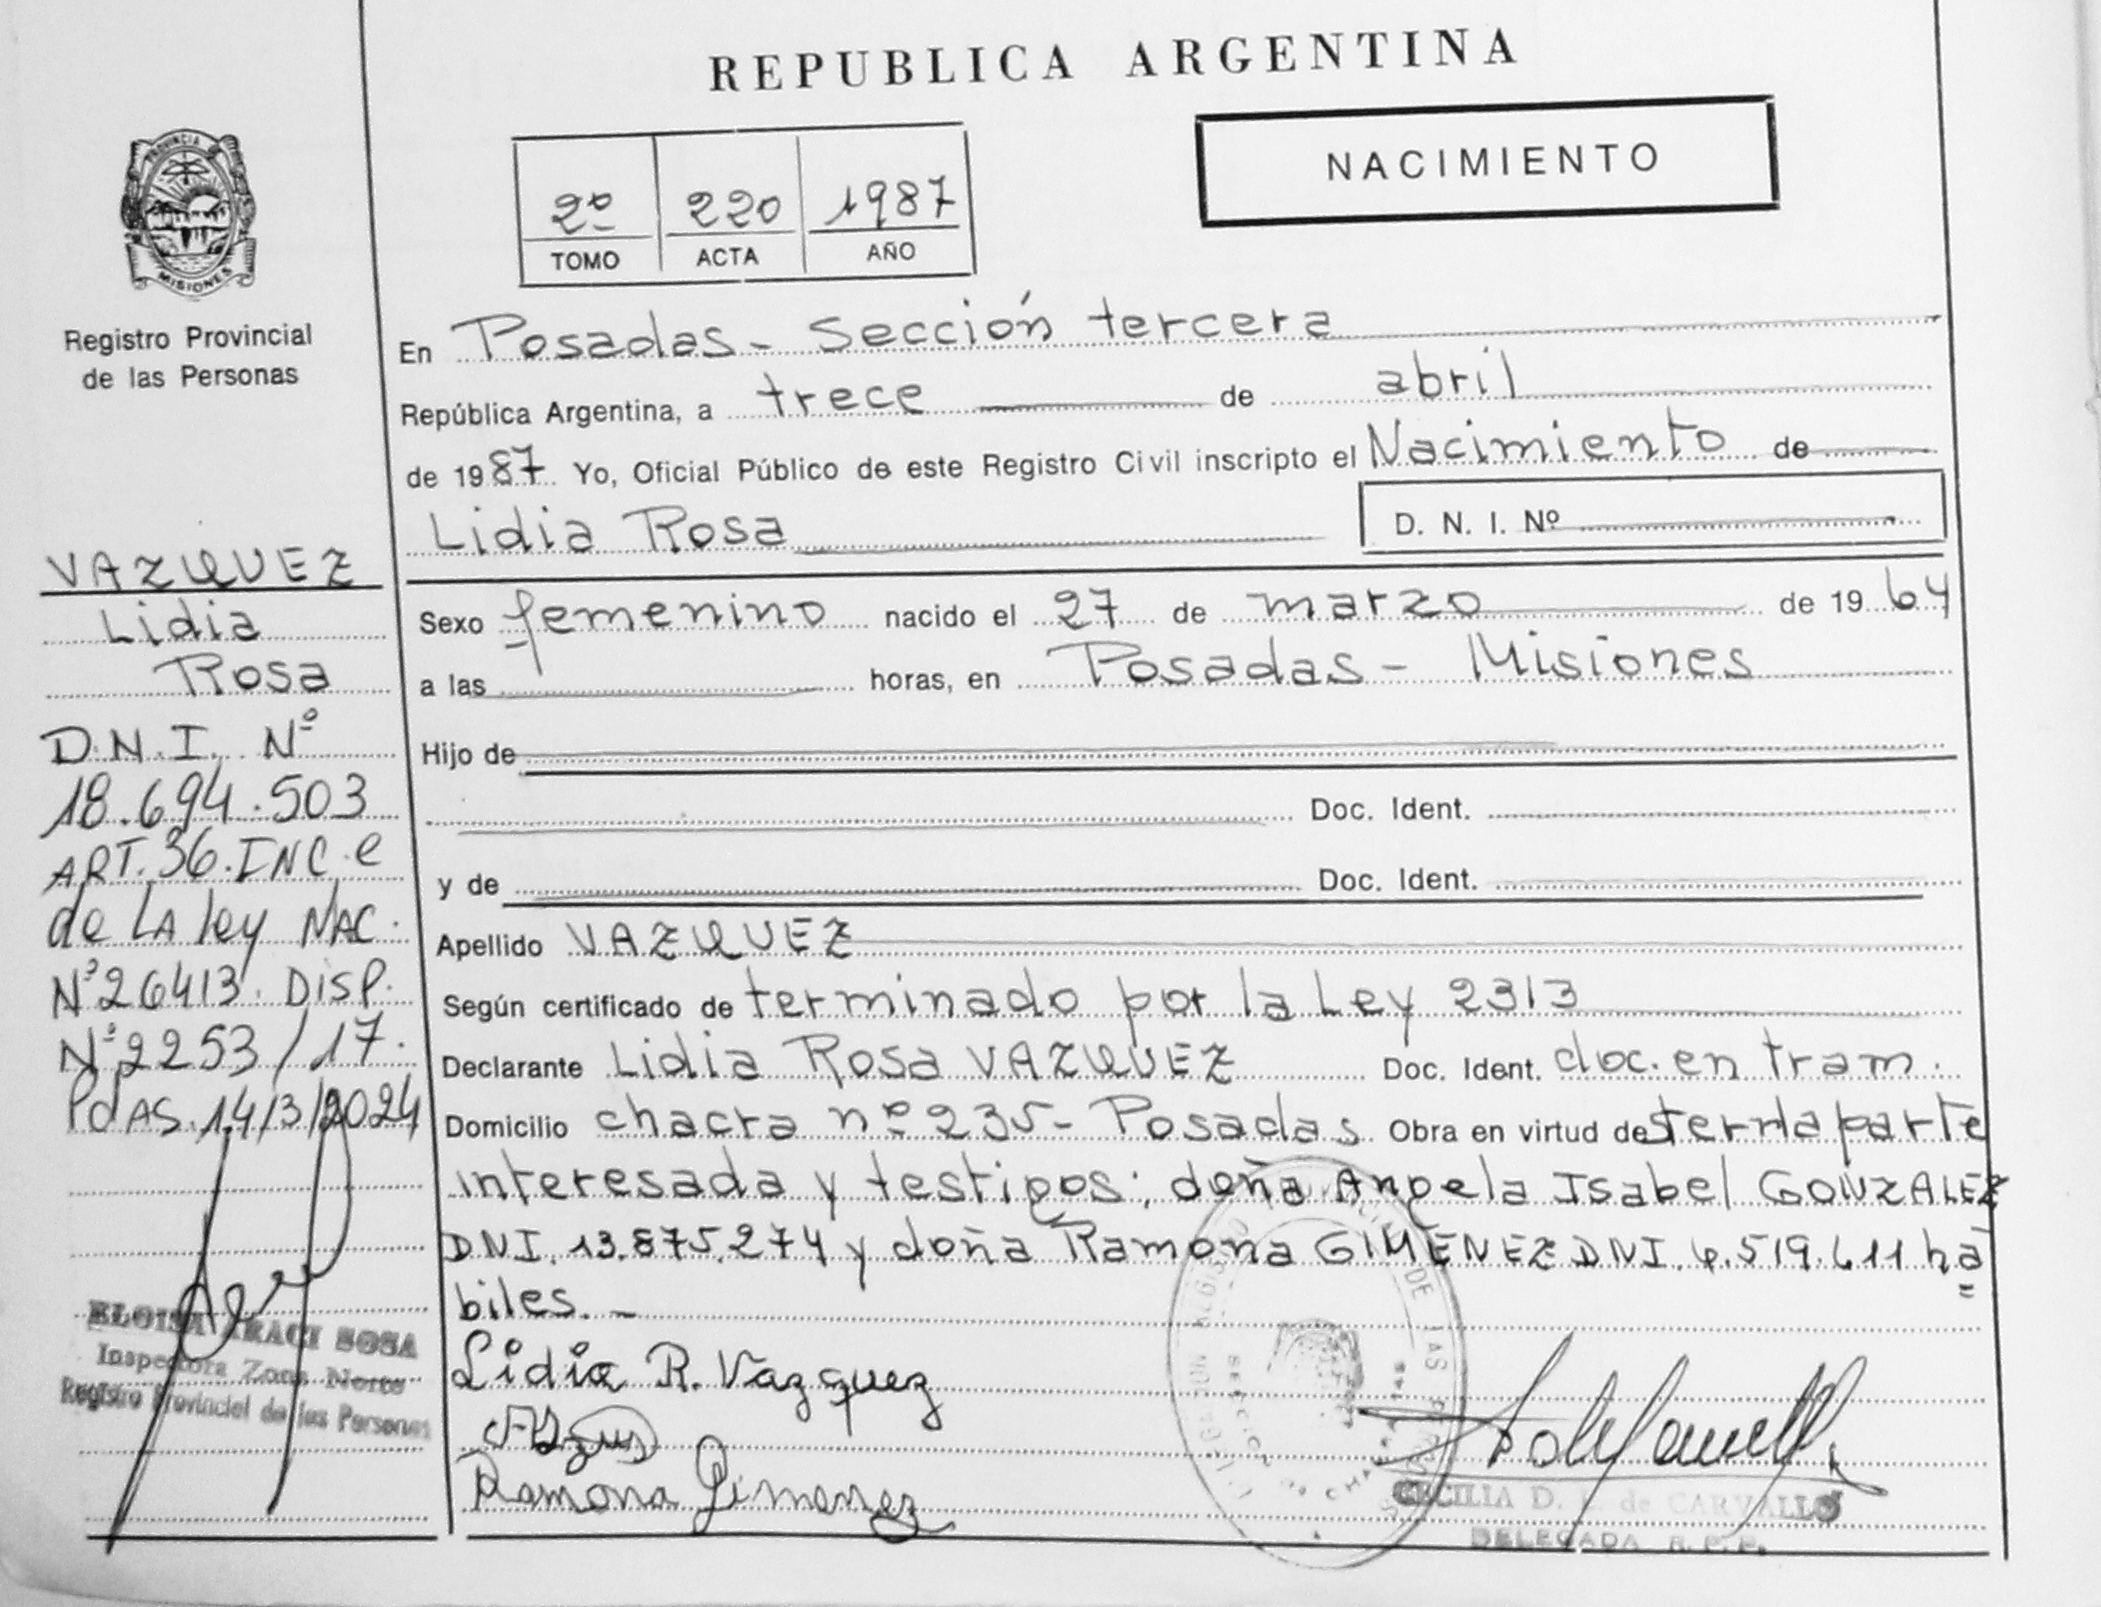 REPUBLICA ARGENTINA
NACIMIENTO
2º 220 1987
TOMO ACTA AÑO
PROVINCIA DE
MISIONES
Registro Provincial
de las Personas
En Posadas - Sección tercera
República Argentina, a trece de abril
de 1987 Yo, Oficial Público de este Registro Civil inscripto el Nacimiento de
Lidia Rosa D. N. I. Nº
Sexo femenino nacido el 27 de marzo de 1964
a las horas, en Posadas - Misiones
Hijo de
Doc. Ident.
y de Doc. Ident.
Apellido VAZQUEZ
Según certificado de terminado por la Ley 2313
Declarante Lidia Rosa VAZQUEZ Doc. Ident. doc. en tram.
Domicilio chacra nº 235 - Posadas Obra en virtud de ser la parte
interesada y testigos: doña Angela Isabel GONZALEZ
DNI. 13.875.274 y doña Ramona GIMENEZ DNI. 4.519.611 há
biles. -
Lidia R. Vazquez
Ramona Gimenez
CECILIA D. L. de CARVALLO
DELEGADA R. P. P.
VAZQUEZ
Lidia
Rosa
D.N.I. Nº
18.694.503
ART. 36. INC. e
de LA ley NAC.
Nº 26413. DISP.
Nº 2253/17.
PdAS. 14/3/2024
ELOISA ARACI SOSA
Inspectora Zona Norte
Registro Provincial de las Personas